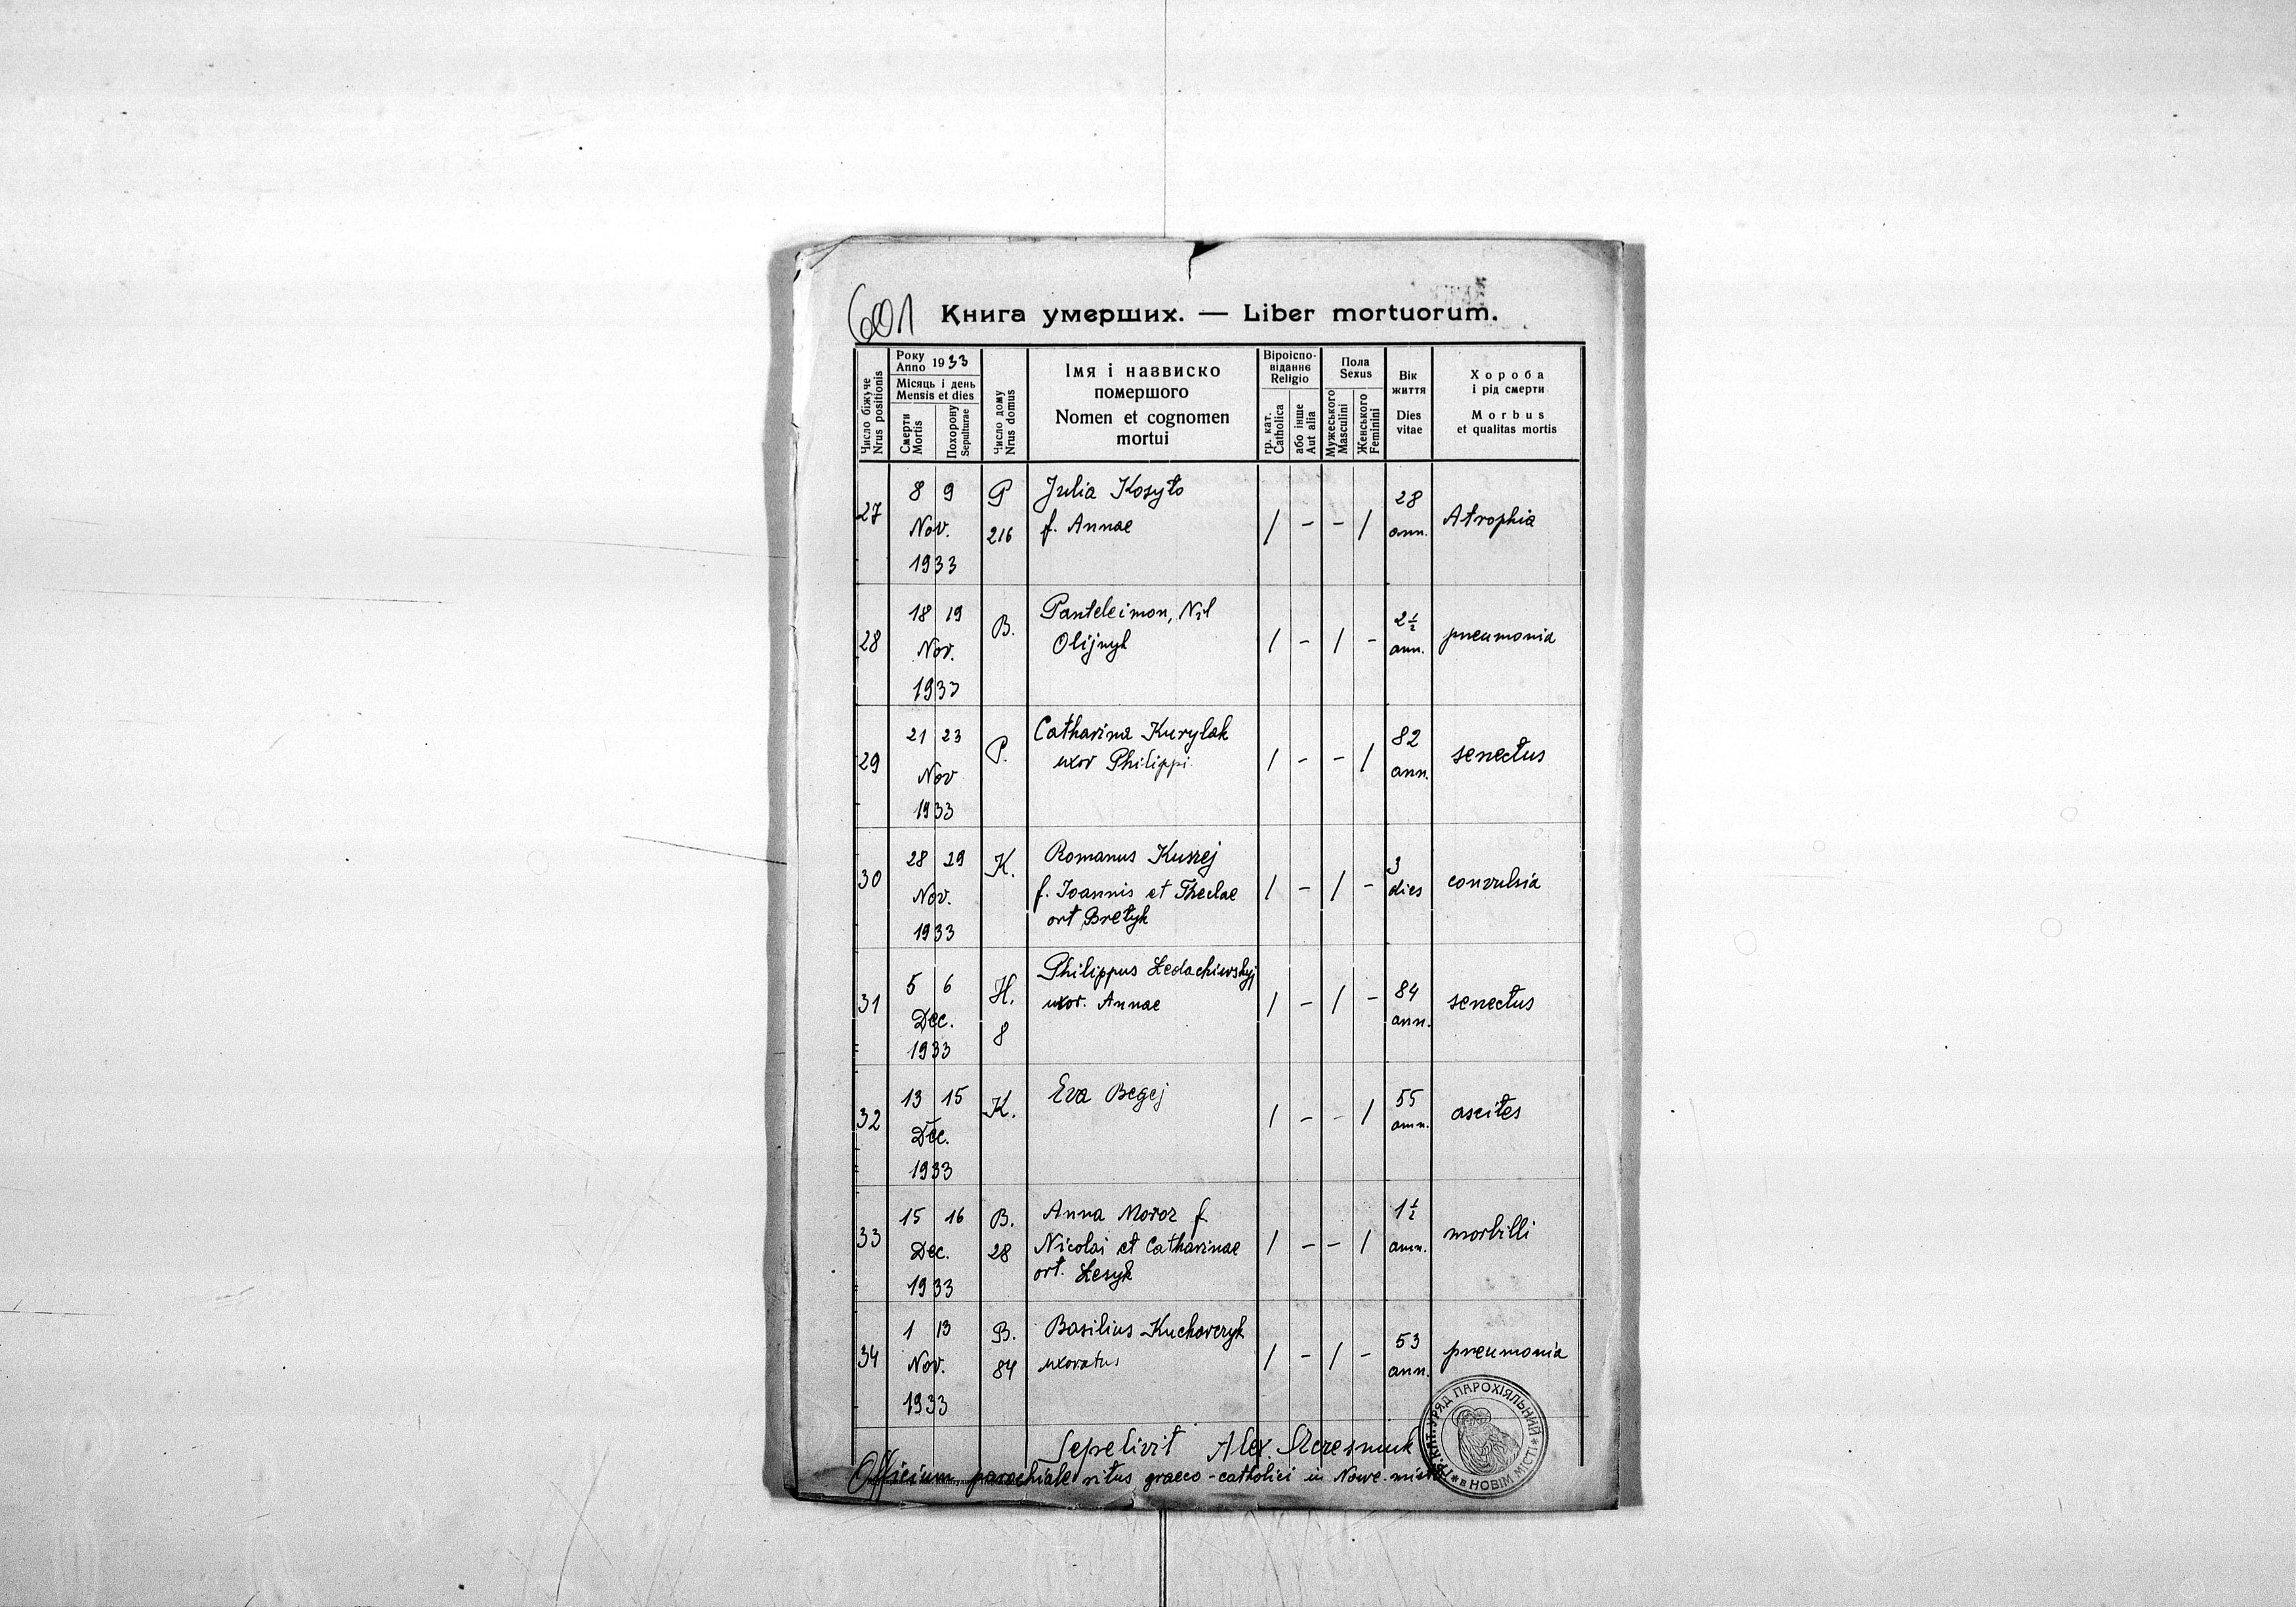 601
Книга умерших. — Liber mortuorum.
Число біжуче
Nrus positionis
Року
Anno 1933
Місяць і день
Mensis et dies
Смерти
Mortis
Похорону
Sepulturae
Число дому
Nrus domus
Імя і назвиско
помершого
Nomen et cognomen
mortui
Віроіспо-
віданнє
Religio
гр. кат.
Catholica
або інше
Aut alia
Пола
Sexus
Мужеського
Masculini
Женського
Feminini
Вік
життя
Dies
vitae
Хороба
і рід смерти
Morbus
et qualitas mortis
27
8 9
Nov.
1933
P
216
Julia Kosyło
f. Annae
/ - - /
28
ann.
Atrophia
28
18 19
Nov.
1933
B.
Panteleimon, Nil
Olijnyk
/ - / -
2½
ann.
pneumonia
29
21 23
Nov
1933
P.
Catharina Kurylak
uxor Philippi
/ - - /
82
ann.
senectus
30
28 29
Nov.
1933
K.
Romanus Kuszej
f. Joannis et Theclae
ort Bretyk
/ - / -
3
dies
convulsia
31
5 6
Dec.
1933
H.
8
Philippus Ledachiwskyj
uxor. Annae
/ - / -
84
ann.
senectus
32
13 15
Dec.
1933
K.
Eva Begej
/ - - /
55
ann.
ascites
33
15 16
Dec.
1933
B.
28
Anna Moroz f
Nicolai et Catharinae
ort. Łesyk
/ - - /
1½
ann.
morbilli
34
1 13
Nov.
1933
B.
84
Basilius Kucharczyk
uxoratus
/ - / -
53
ann.
pneumonia
Sepelivit Alex
Officium parochiale ritus graeco-catholici in Nowe-miasto
ГР. КАТ. УРЯД ПАРОХІЯЛЬНИЙ
в НОВІМ МІСТІ